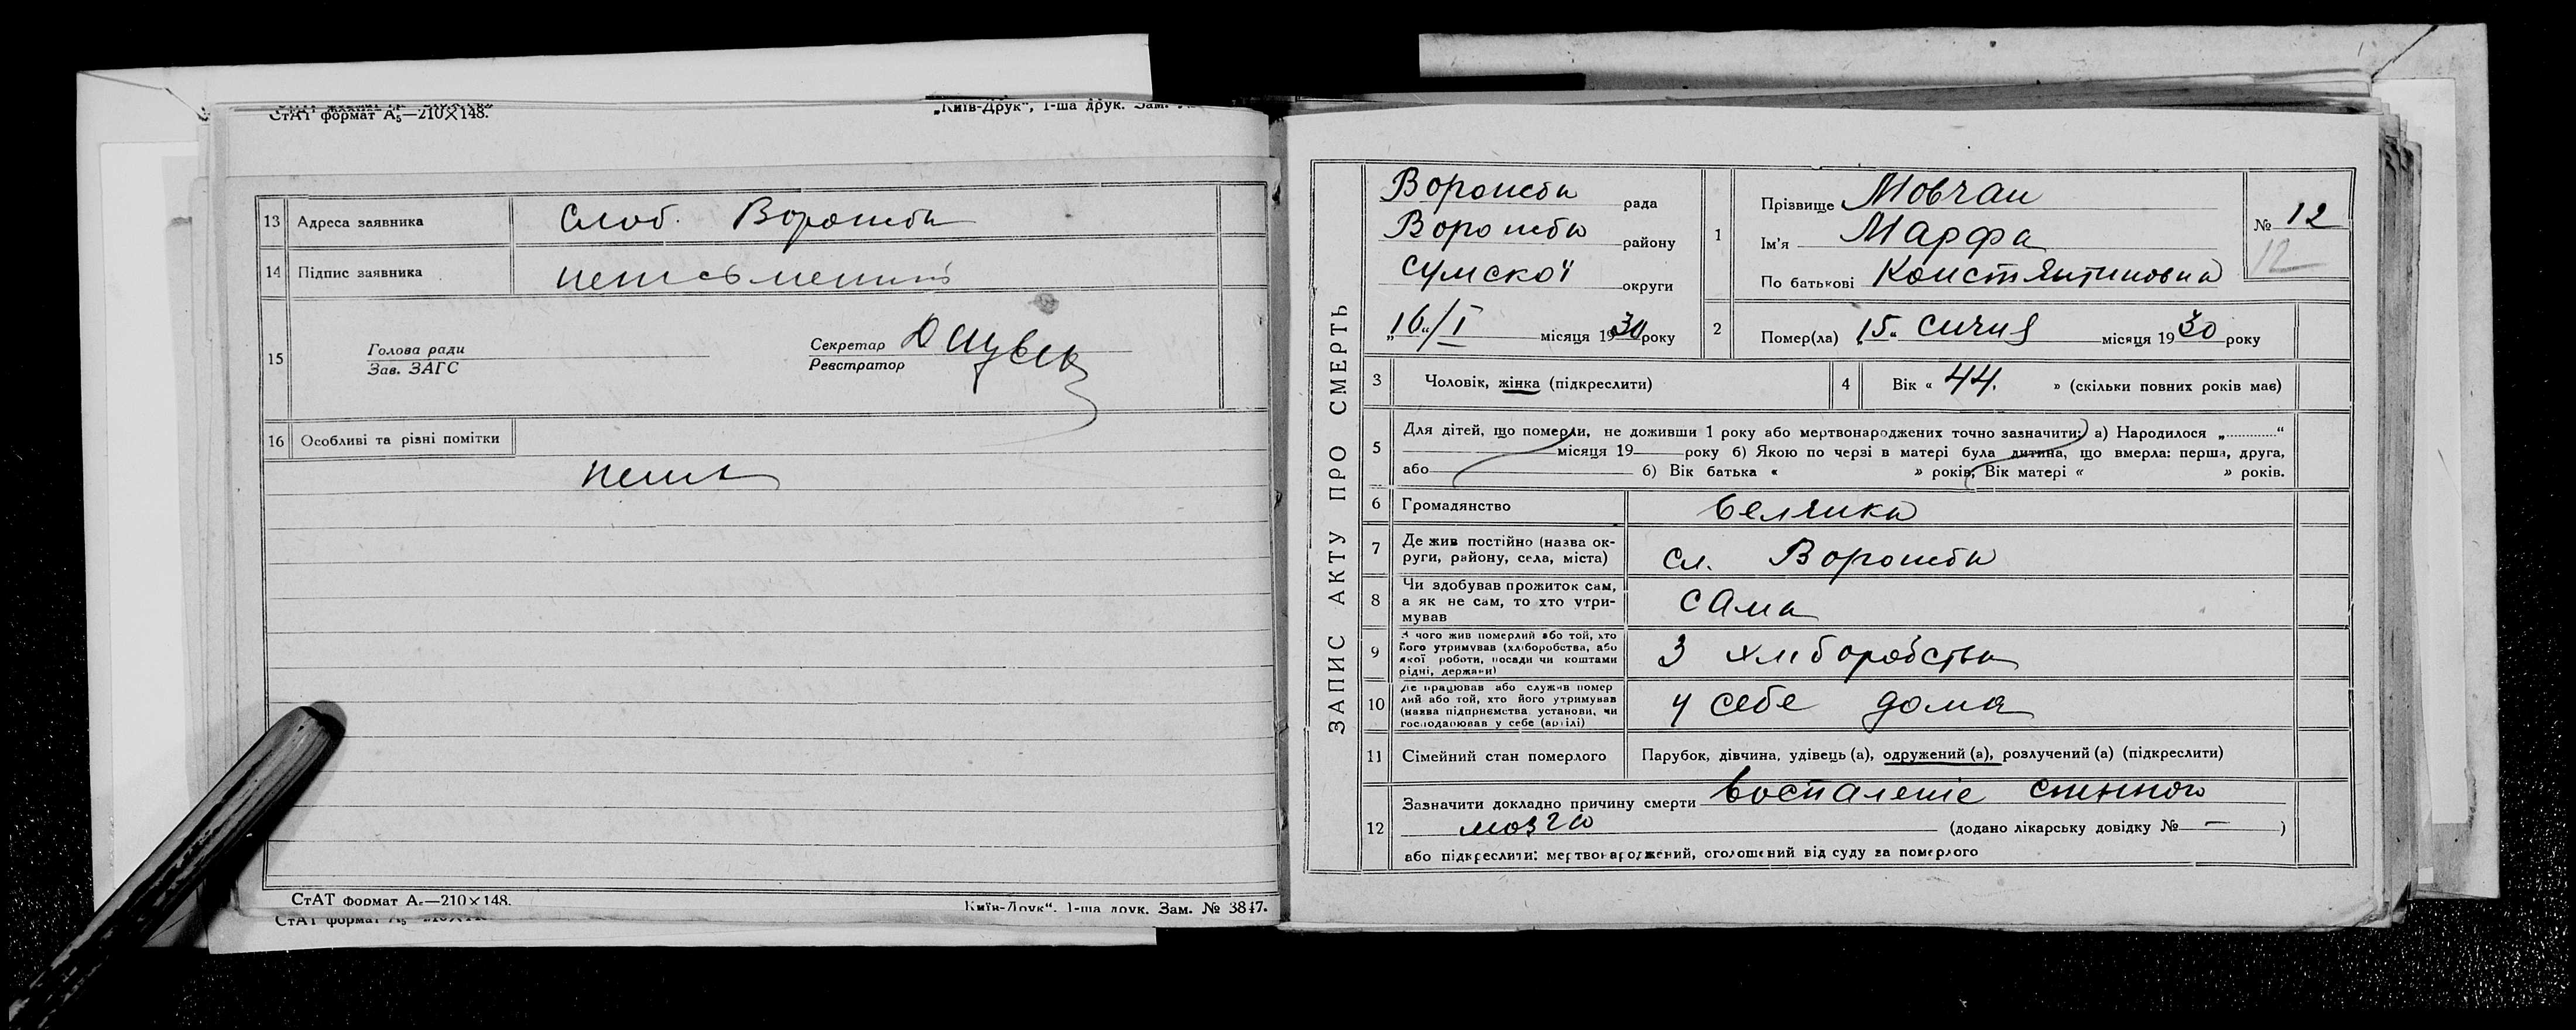 СтАТ формат А₅—210×148.
„Київ-Друк“, 1-ша друк. Зам.
13 Адреса заявника Слоб. Ворожба
14 Підпис заявника
15 Голова ради
Зав. ЗАГС
Секретар
Реєстратор
16 Особливі та різні помітки
СтАТ формат А₅—210×148.
„Київ-Друк“, 1-ша друк. Зам. № 3847.
СтАТ формат А₅
ЗАПИС АКТУ ПРО СМЕРТЬ
Ворожба рада
Ворожба району
Сумскої округи
„16“/I місяця 1930 року
1 Прізвище Мовчан
Ім'я Марфа
По батькові Констянтиновна
№ 12
12
2 Помер(ла) „15“ січня місяця 1930 року
3 Чоловік, жінка (підкреслити)
4 Вік « 44. » (скільки повних років має)
5 Для дітей, що померли, не доживши 1 року або мертвонароджених точно зазначити: а) Народилося „............“
місяця 19 року б) Якою по черзі в матері була дитина, що вмерла: перша, друга,
або б) Вік батька « » років, Вік матері « » років.
6 Громадянство
7 Де жив постійно (назва ок-
руги, району, села, міста) сл. Ворожба
8 Чи здобував прожиток сам,
а як не сам, то хто утри-
мував сама
9 З чого жив померлий або той, хто
його утримував (хліборобства, або
якої роботи, посади чи коштами
рідні, держави) З хліборобства
10 Де працював або служив помер
лий або той, хто його утримував
(назва підприємства установи, чи
господарював у себе (артілі) у себе дома
11 Сімейний стан померлого Парубок, дівчина, удівець (а), одружений (а), розлучений (а) (підкреслити)
12 Зазначити докладно причину смерти Воспаленіе спинного
мозга (додано лікарську довідку № — )
або підкреслити: мертвонароджений, оголошений від суду за померлого